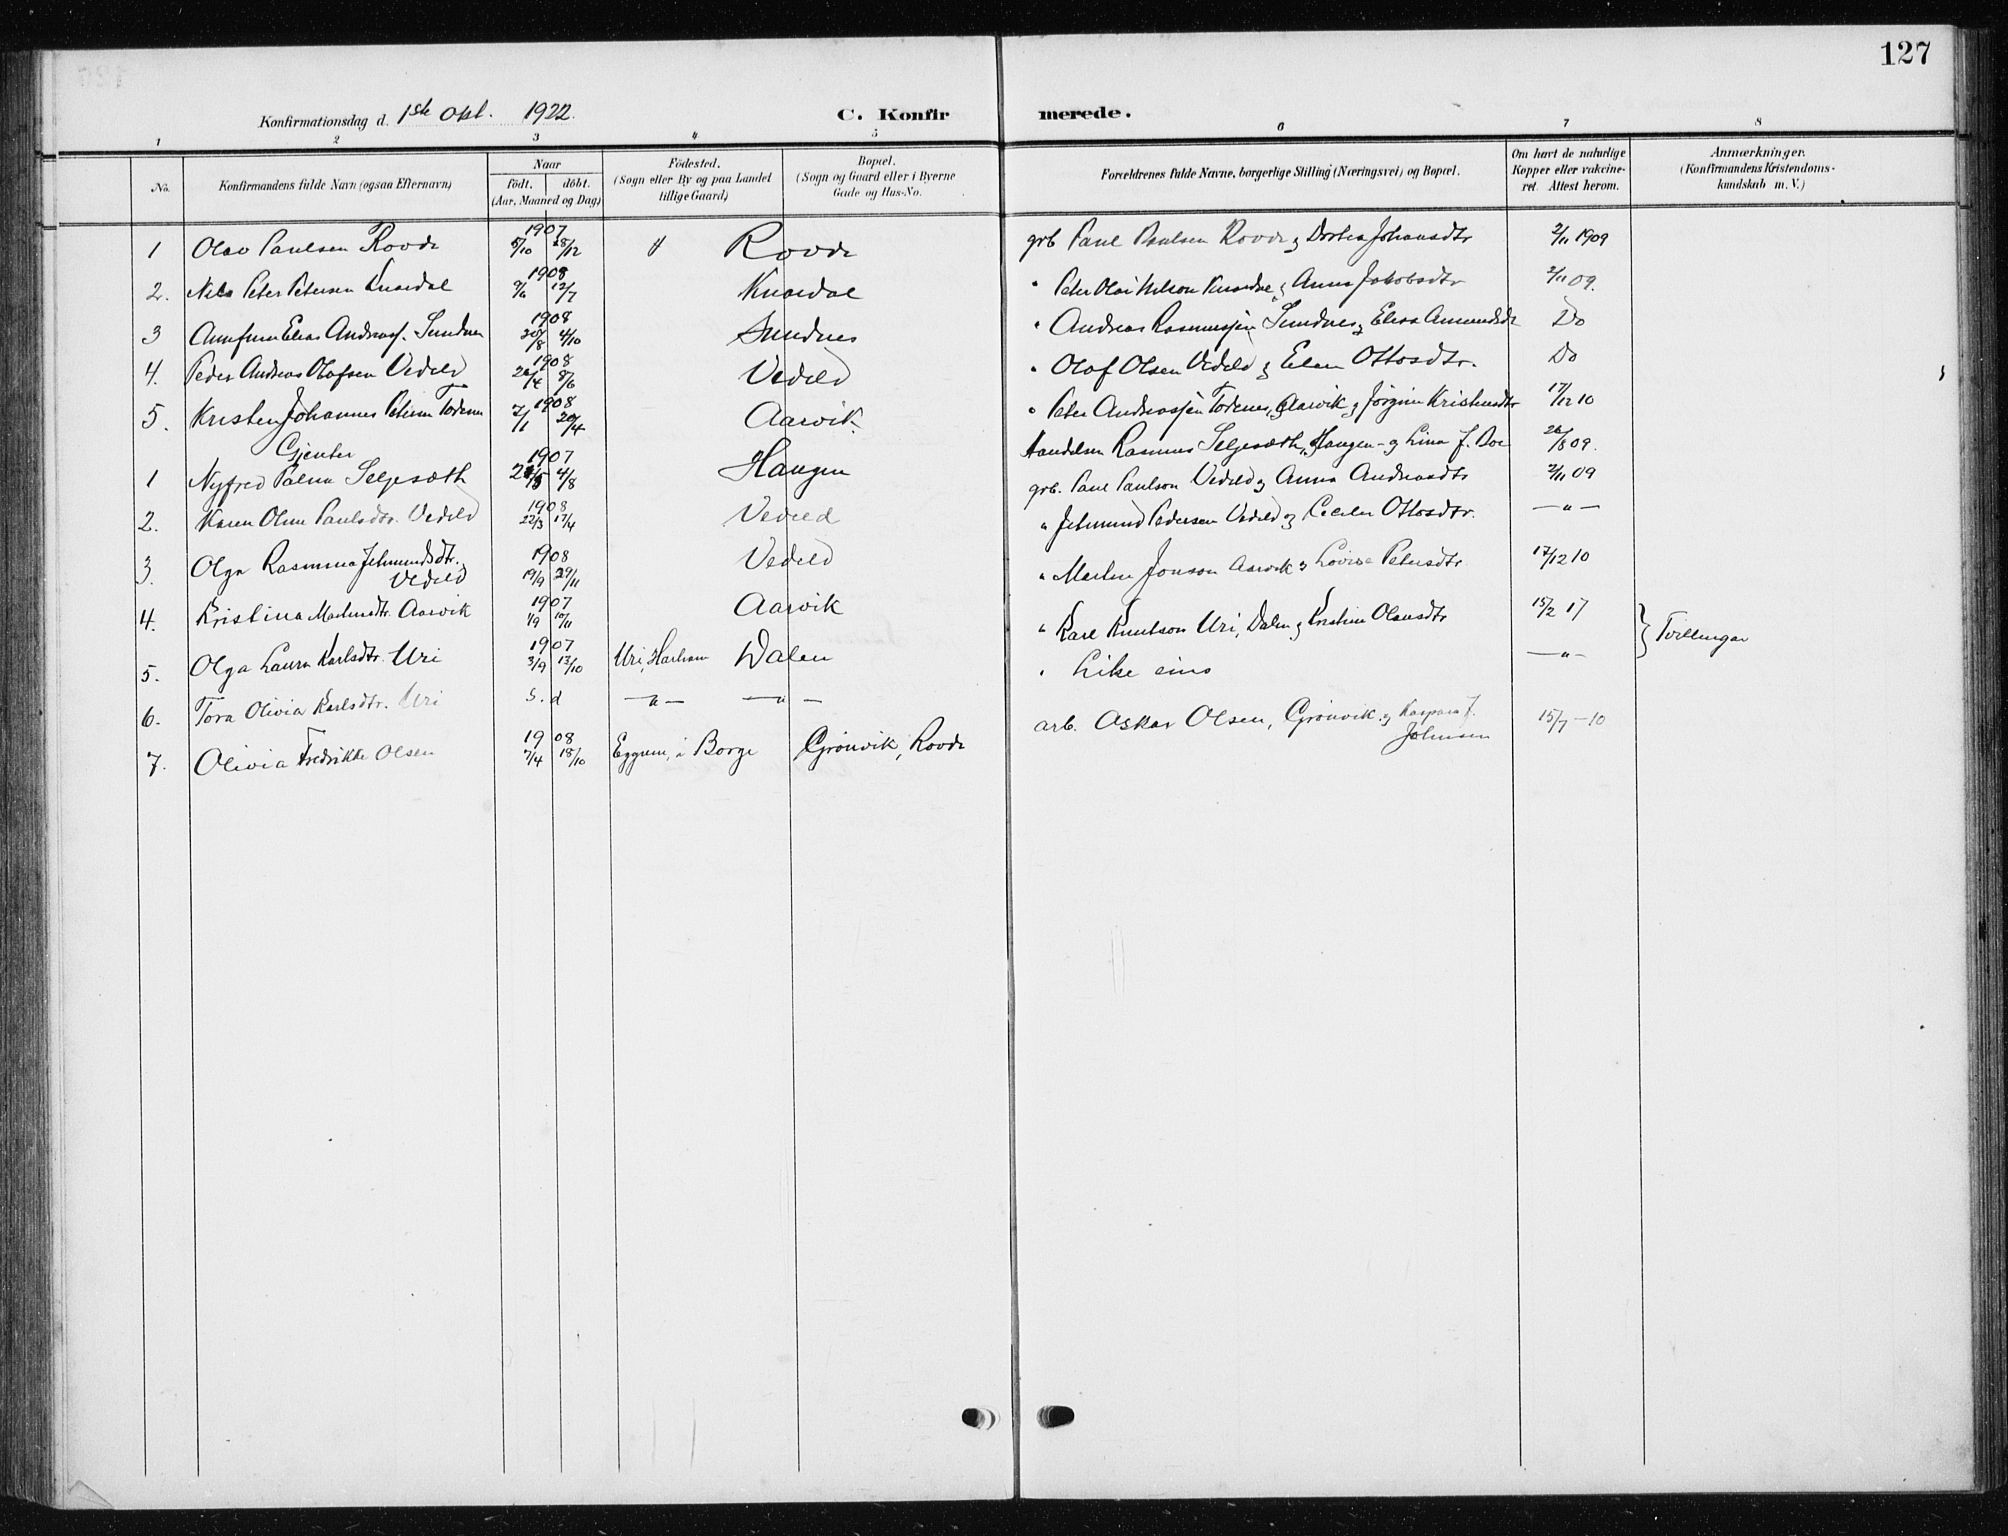 127
Konfirmationsdag d. 1ste Okt. 1922. C. Konfirmerede.
1 2 3 4 5 6 7 8
No. Konfirmandens fulde Navn (ogsaa Efternavn) Naar Födested. Bopæl. Forældrenes fulde Navne, borgerlige Stilling (Næringsvei) og Bopæl. Om havt de naturlige Anmærkninger.
födt. döbt. (Sogn eller By og paa Landet (Sogn og Gaard eller i Byerne Kopper eller vakcine- (Konfirmandens Kristendoms-
(Aar, Maaned og Dag) tillige Gaard) Gade og Hus-No. ret. Attest herom. kundskab m. V.)
1907
1 Olav Paulsen Rovde 5/10 28/12 " Rovde grb Paul Paulsen Rovde og Dortea Johansdtr 2/11 1909
1908
2. Nils Peter Petersen Knardal 9/6 12/7 Knardal " Peter Olai Nelson Knardal og Anna Jakobsdtr 2/11 09.
1908
3 Elias Andreasf. Sundnes 20/8 4/10 Sundnes " Andreas Rasmussen Sundnes og Elisa Amundsdtr Do
1908
4. Peder Andreas Olafsen Vedeld 26/4 8/6 Vedeld " Olaf Olsen Vedeld og Elen Ottosdtr. Do
1908
5. Kristen Johannes Petersen Todenes 7/1 20/4 Aarvik " Peter Andreassen Todenes, Aarvik og Jørgine Kristensdtr 17/12 10
Gjenter 1907
1 Nyfred Palma Seljesæth 4/8 Haugen Handelsm Rasmus Seljesæth, Haugen og Lina J. Boe 26/8 09.
1908
2. Karen Oline Paulsdtr. Vedeld 22/3 17/4 Vedeld grb. Paul Paulson Vedeld og Anna Andreasdtr 2/11 09
3. Olga Rasmina Jetmundsdtr. 1908 Vedeld " Jetmund Pedersen Vedeld og Cecilie Ottosdtr. — " —
Vedeld 19/9 29/11
1907
4. Kristina Martinsdtr. Aarvik 1/9 10/11 Aarvik " Martin Jonson Aarvik og Lovise Petersdtr 17/12 10
1907
5. Olga Laura Karlsdtr. Uri 3/9 13/10 Uri, Harham Dalen " Karl Knutson Uri, Dalen og Kristine Olausdtr 15/2 17 } Tvillingar
6. Tora Olivia Karlsdtr. Uri s. d — " — — " — " Like eins — " —
1908
7. Olivia Fredrikke Olsen 7/4 18/10 Eggum, i Borge Grönvik, Rovde arb. Oskar Olsen, Grönvik og Kaspara J. Johnsen 15/7 — 10